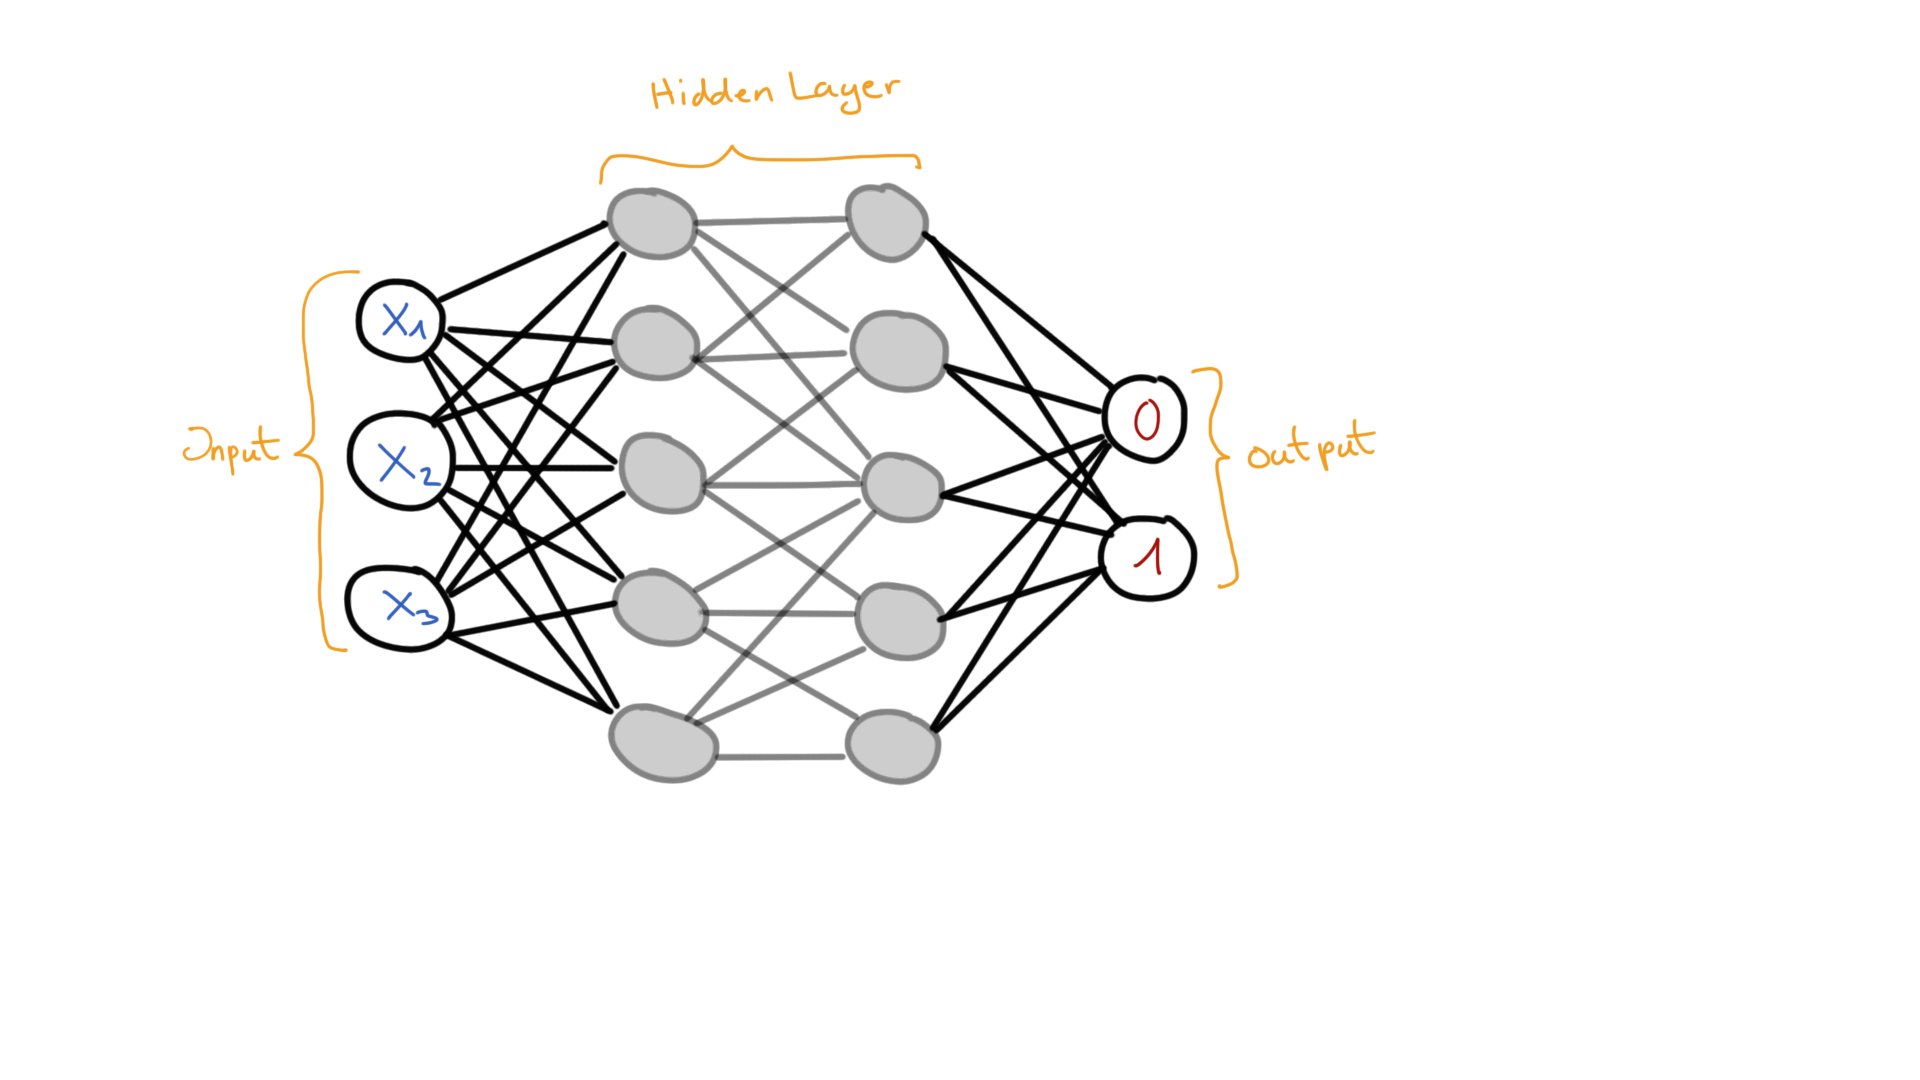 Hidden Layer
Input
X1
X2
X3
0
1
output